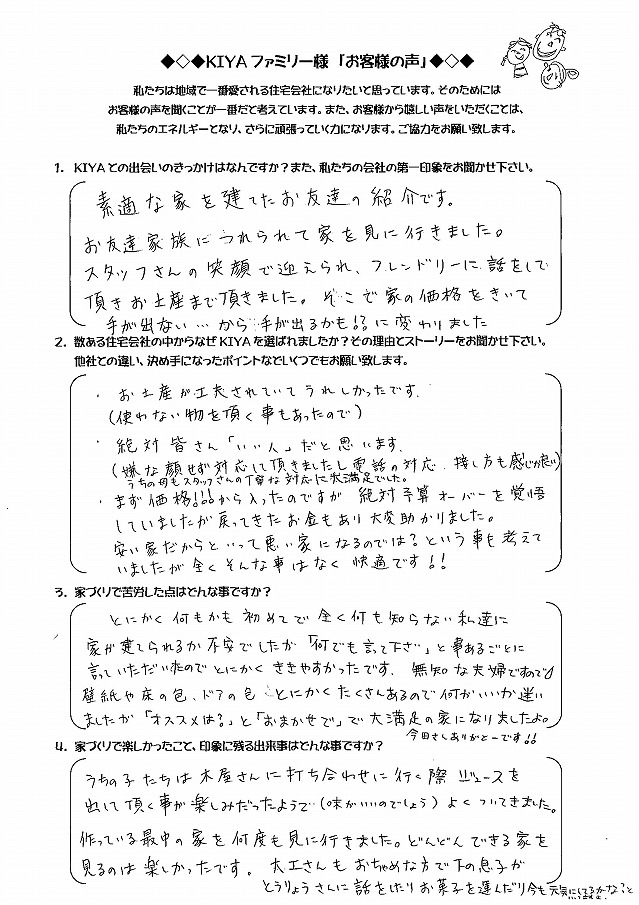 ◆◇◆KIYAファミリー様「お客様の声」◆◇◆
私たちは地域で一番愛される住宅会社になりたいと思っています。そのためには
お客様の声を聞くことが一番だと考えています。また、お客様から嬉しい声をいただくことは、
私たちのエネルギーとなり、さらに頑張っていく力になります。ご協力をお願い致します。
1. KIYAとの出会いのきっかけはなんですか？また、私たちの会社の第一印象をお聞かせ下さい。
素適な家を建てたお友達の紹介です。
お友達家族につれられて家を見に行きました。
スタッフさんの笑顔で迎えられ、フレンドリーに話をして
頂きお土産まで頂きました。そこで家の価格をきいて
手が出ない…から手が出るかも!?に変わりました
2. 数ある住宅会社の中からなぜKIYAを選ばれましたか？その理由とストーリーをお聞かせ下さい。
他社との違い、決め手になったポイントなどいくつでもお願い致します。
・お土産が工夫されていてうれしかったです。
(使わない物を頂く事もあったので)
・絶対皆さん「いい人」だと思います。
(嫌な顔せず対応して頂きましたし電話の対応、接し方も感じが良い)
うちの母もスタッフさんの丁寧な対応に大満足でした。
・まず価格!!!から入ったのですが絶対予算オーバーを覚悟
していましたが戻ってきたお金もあり大変助かりました。
安い家だからといって悪い家になるのでは？という事も考えて
いましたが全くそんな事はなく快適です!!
3. 家づくりで苦労した点はどんな事ですか？
とにかく何もかも初めてで全く何も知らない私達に
家が建てられるか不安でしたが「何でも言って下さい」と事あるごとに
言っていただいたのでとにかくききやすかったです。無知な夫婦ですので
壁紙や床の色、ドアの色とにかくたくさんあるので何がいいか迷い
ましたが「オススメは？」と「おまかせで」で大満足の家になりましたよ。
今田さんありがとーです!!
4. 家づくりで楽しかったこと、印象に残る出来事はどんな事ですか？
うちの子たちは木屋さんに打ち合わせに行く際ジュースを
出して頂く事が楽しみだったようで(味がいいのでしょう)よくついてきました。
作っている最中の家を何度も見に行きました。どんどんできる家を
見るのは楽しかったです。大工さんもおちゃめな方で下の息子が
とうりょうさんに話をしたりお菓子を選んだり今も元気にしてるかな？と